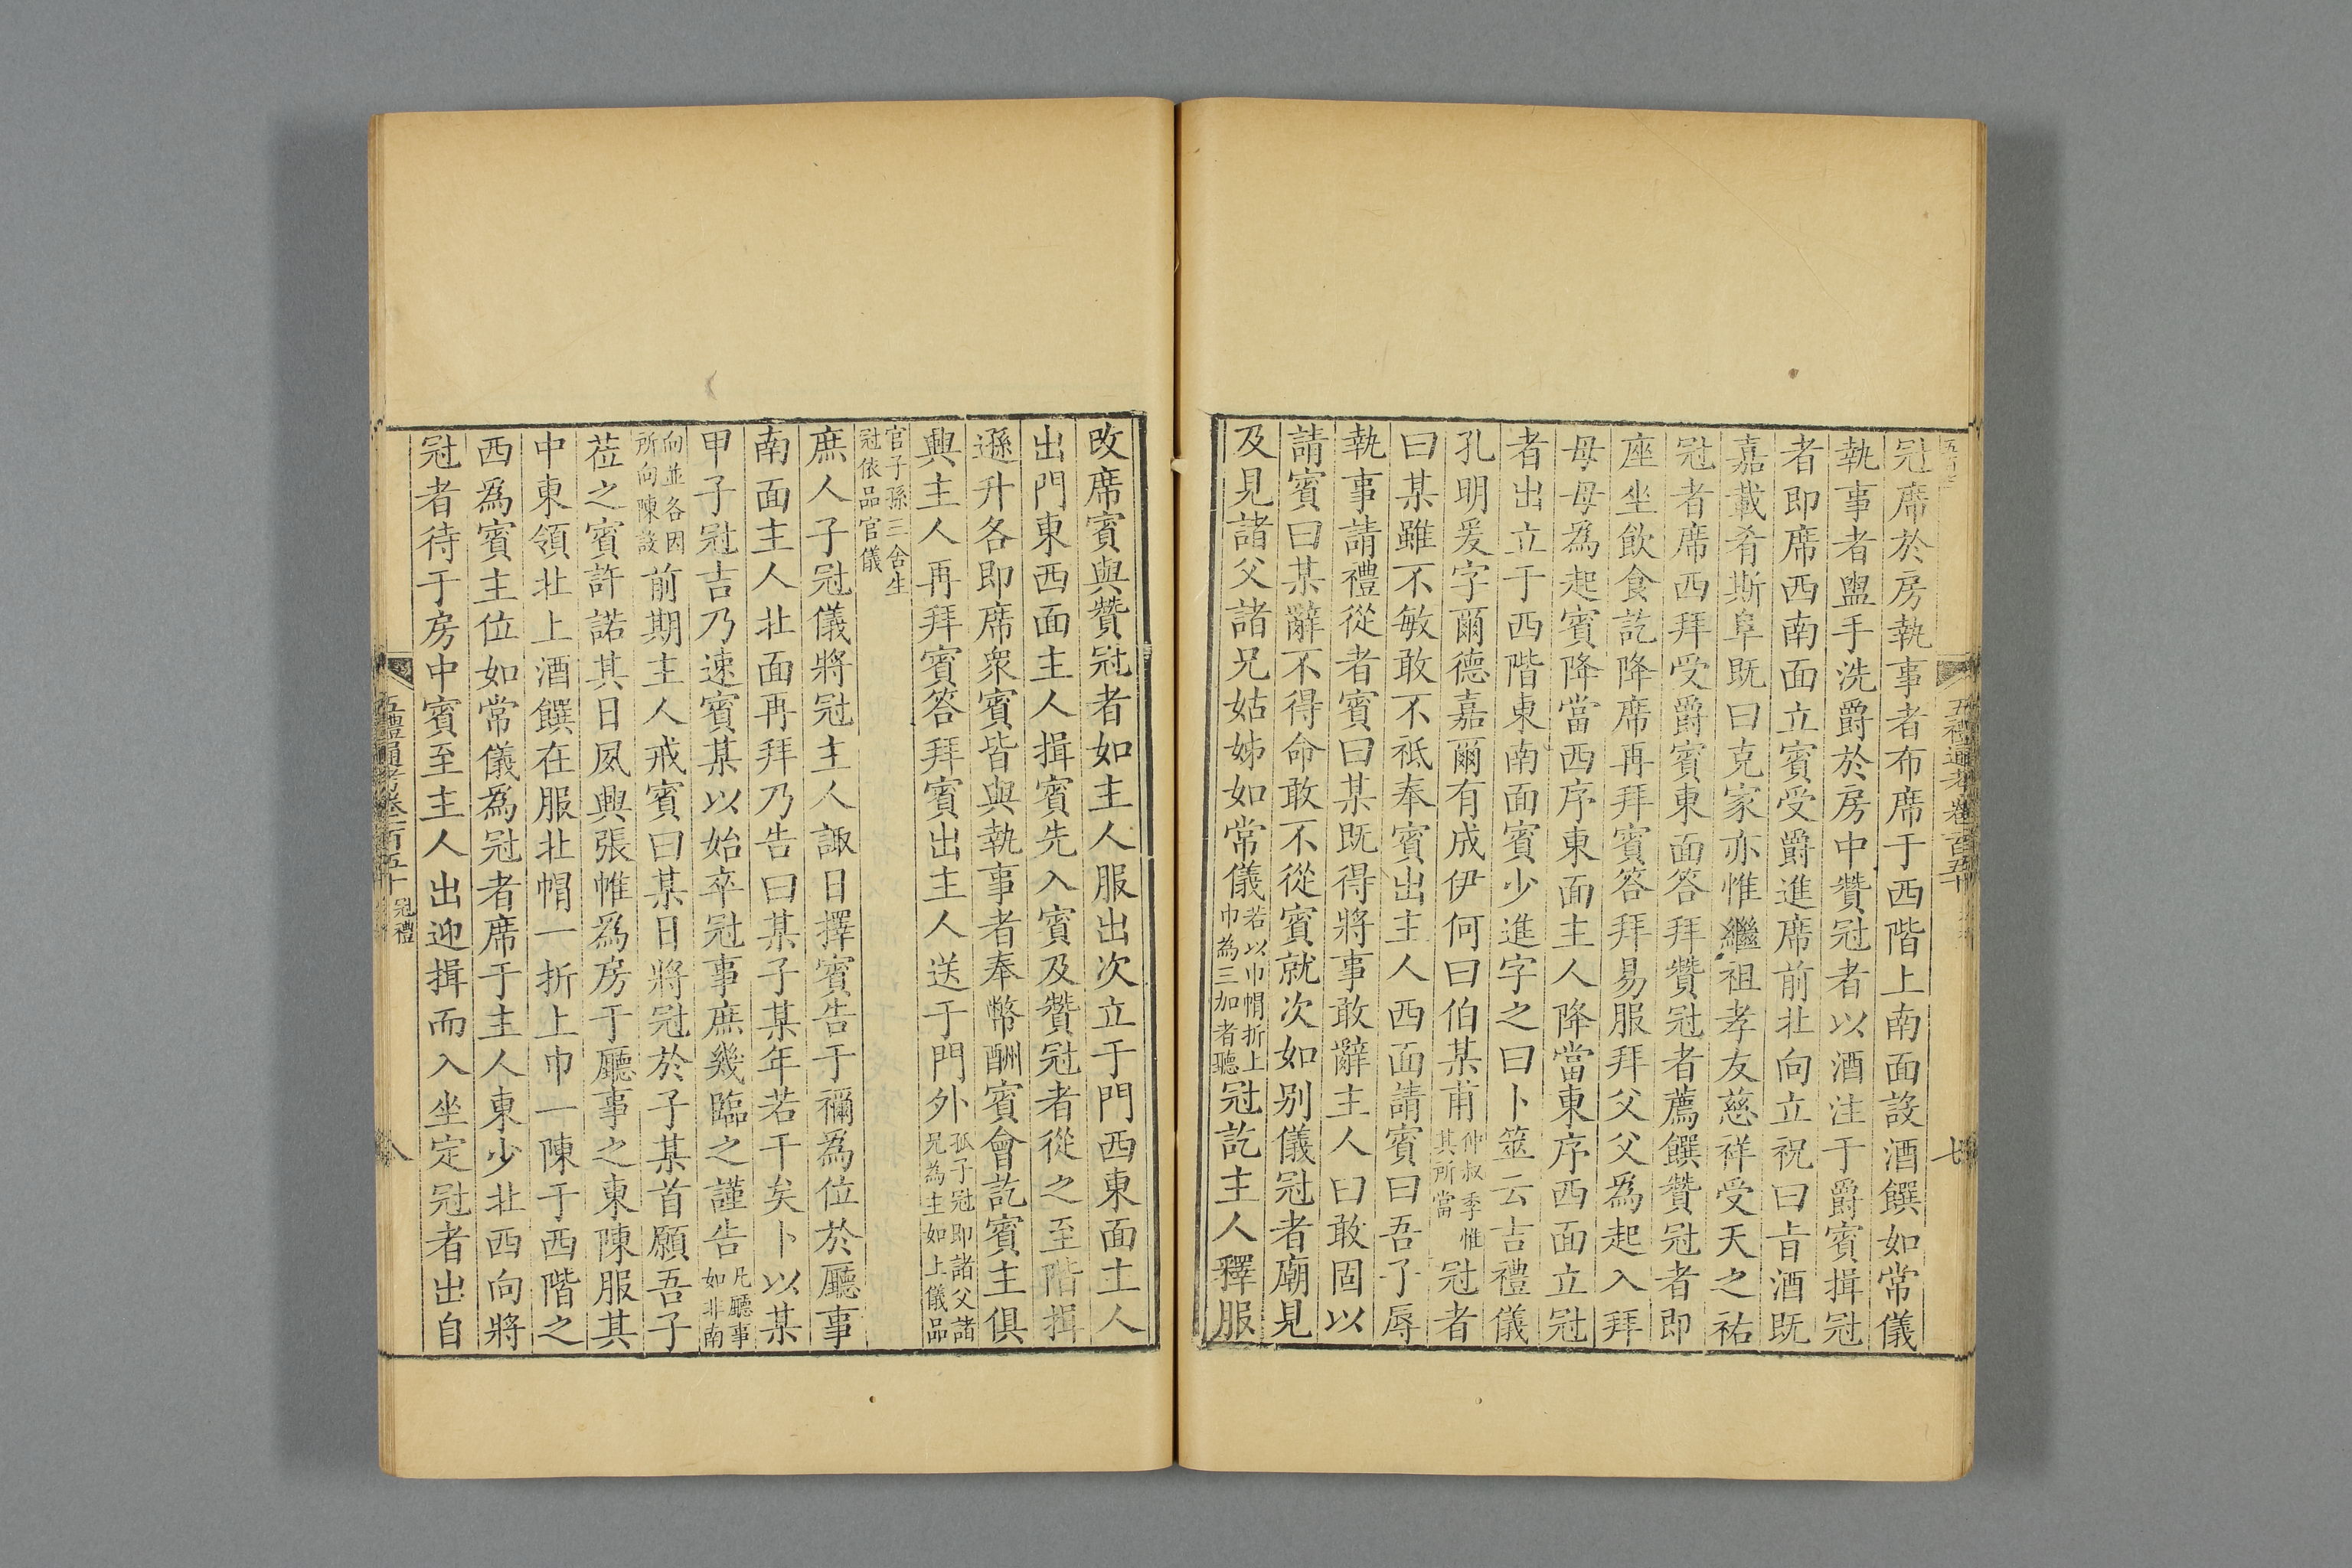 五禮通考卷百五十
七
冠席於房執事者布席于西階上南面設酒饌如常儀
執事者盥手洗爵於房中贊冠者以酒注于爵賓揖冠
者即席西南面立賓受爵進席前北向立祝曰旨酒既
嘉載肴斯阜既曰克家亦惟繼祖孝友慈祥受天之祐
冠者席西拜受爵賓東面答拜贊冠者薦饌贊冠者即
座坐飲食訖降席再拜賓答拜易服拜父父為起入拜
母母為起賓降當西序東面主人降當東序西面立冠
者出立于西階東南面賓少進字之曰卜筮云吉禮儀
孔明爰字爾德嘉爾有成伊何曰伯某甫仲叔季惟其所當冠者
曰某雖不敏敢不祗奉賓出主人西面請賓曰吾子辱
執事請禮從者賓曰某既得將事敢辭主人曰敢固以
請賓曰某辭不得命敢不從賓就次如别儀冠者廟見
及見諸父諸兄姑姊如常儀若以巾帽折上巾為三加者聽冠訖主人釋服
改席賓與贊冠者如主人服出次立于門西東面主人
出門東西面主人揖賓先入賓及贊冠者從之至階揖
遜升各即席衆賓皆與執事者奉幣酬賓會訖賓主俱
興主人再拜賓答拜賓出主人送于門外孤子冠即諸父諸兄為主如上儀品
官子孫三舍生冠依品官儀
庶人子冠儀將冠主人諏日擇賓告于禰為位於廳事
南面主人北面再拜乃告曰某子某年若干矣卜以某
甲子冠吉乃速賓某以始卒冠事庶幾臨之謹告凡廳事如非南
向並各因所向陳設前期主人戒賓曰某日將冠於子某首願吾子
莅之賓許諾其日夙興張帷為房于廳事之東陳服其
中東領北上酒饌在服北帽一折上巾一陳于西階之
西為賓主位如常儀為冠者席于主人東少北西向將
冠者待于房中賓至主人出迎揖而入坐定冠者出自
五禮通考卷一百五十 冠禮
八